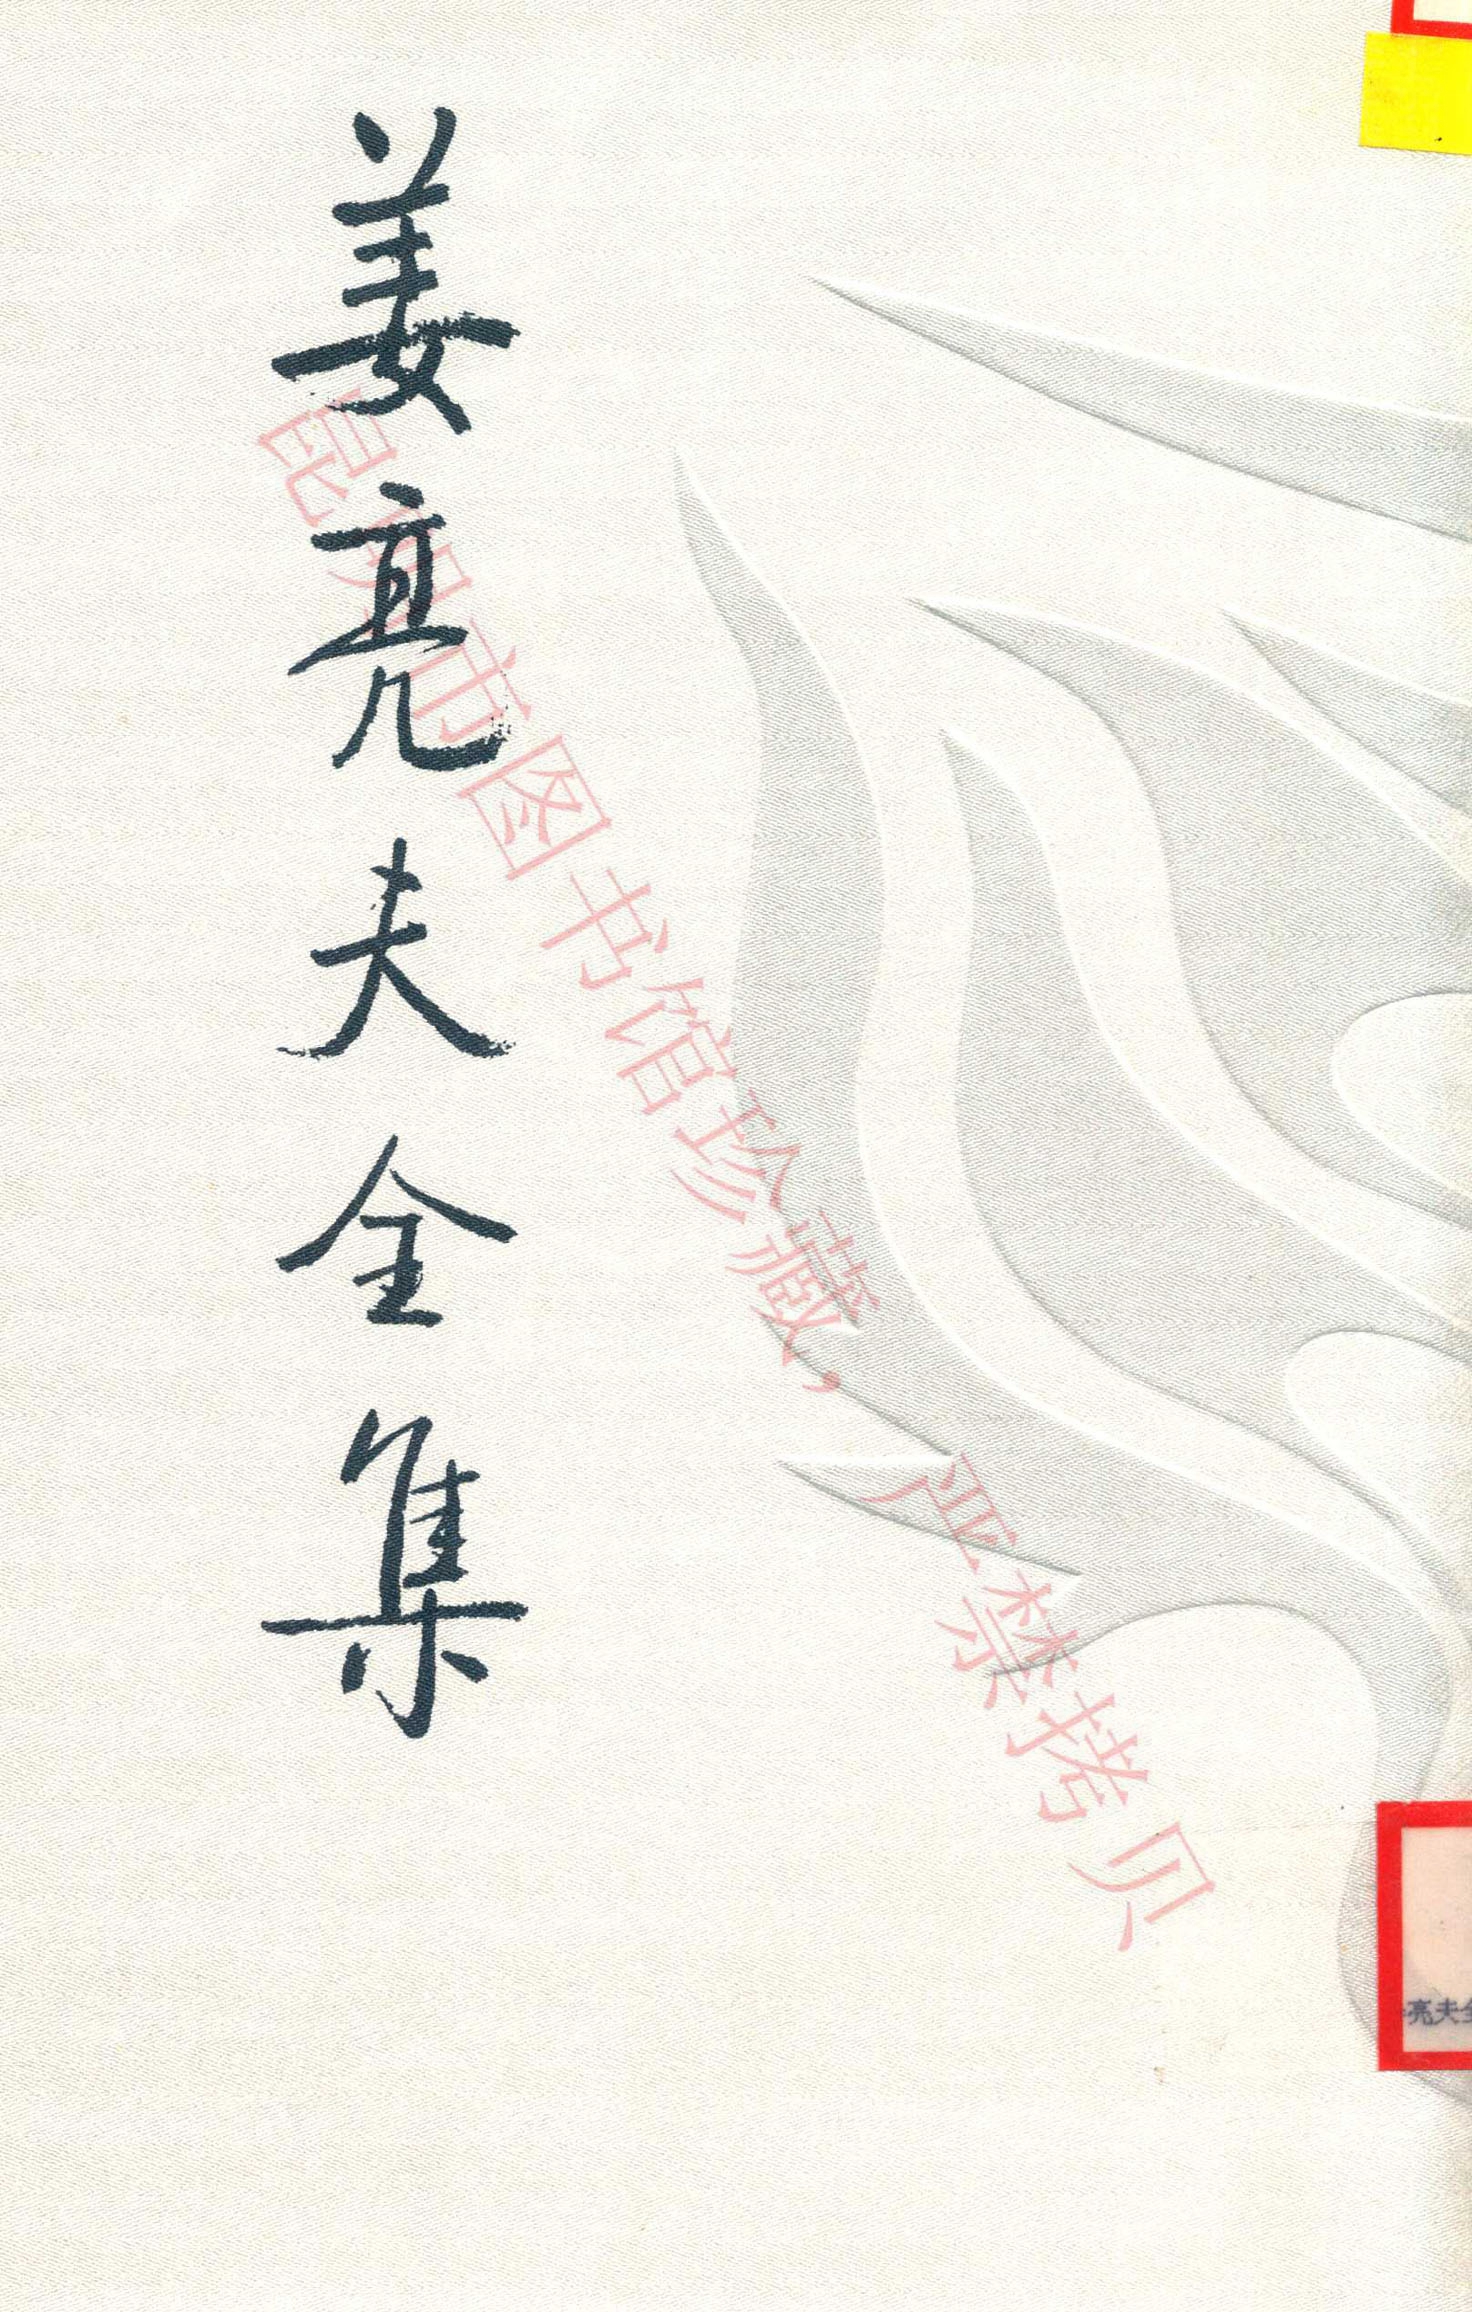 姜亮夫全集
昆明市图书馆珍藏，严禁拷贝
亮夫全